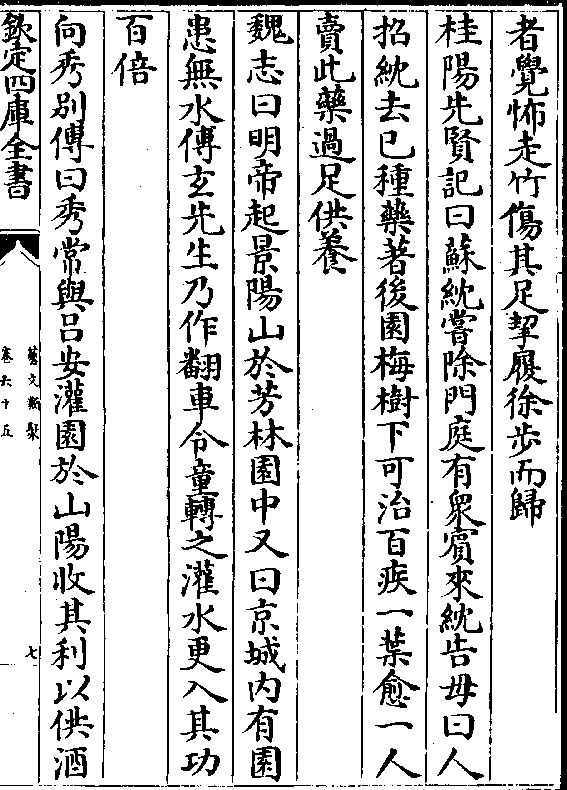 者覺怖走竹傷其足挈履徐步而歸
桂陽先賢記曰蘇統嘗除門庭有衆賓來統告母曰人
招統去已種藥著後園梅樹下可治百疾一葉愈一人
賣此藥過足供養
魏志曰明帝起景陽山於芳林園中又曰京城内有園
患無水傅玄先生乃作翻車令童轉之灌水更入其功
百倍
向秀別傳曰秀常與呂安灌園於山陽收其利以供酒
欽定四庫全書
藝文類聚
卷六十五
七